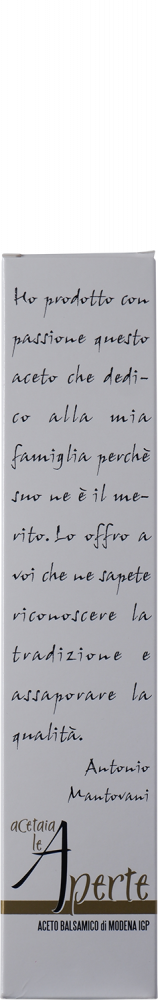 Ho prodotto con
passione questo
aceto che dedi-
co alla mia
famiglia perchè
suo ne è il me-
rito. Lo offro a
voi che ne sapete
riconoscere la
tradizione e
assaporare la
qualità.
Antonio
Mantovani
acetaia
le
Aperte
ACETO BALSAMICO di MODENA IGP